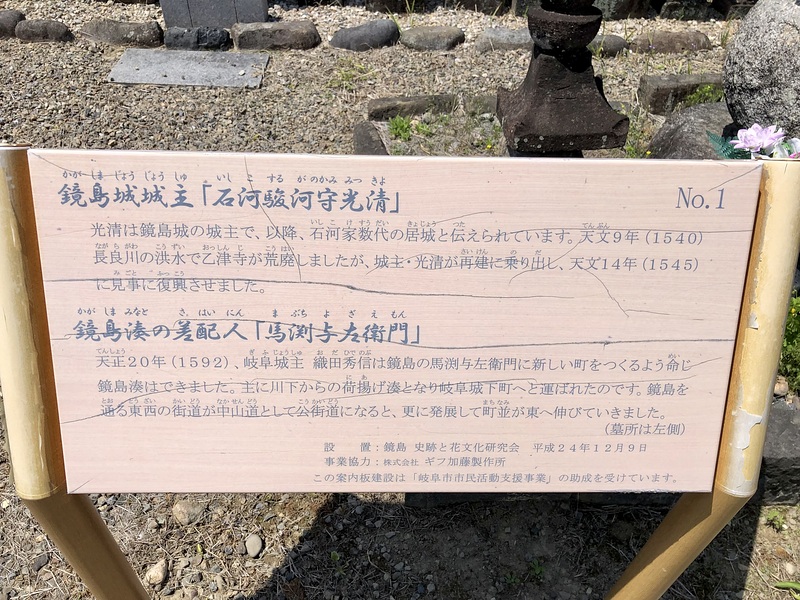 鏡島城城主「石河駿河守光清」
No.1
光清は鏡島城の城主で、以降、石河家数代の居城と伝えられています。天文9年(1540)
長良川の洪水で乙津寺が荒廃しましたが、城主・光清が再建に乗り出し、天文14年(1545)
に見事に復興させました。
鏡島湊の差配人「馬渕与左衛門」
天正20年(1592)、岐阜城主 織田秀信は鏡島の馬渕与左衛門に新しい町をつくるよう命じ
鏡島湊はできました。主に川下からの荷揚げ湊となり岐阜城下町へと運ばれたのです。鏡島を
通る東西の街道が中山道として公街道になると、更に発展して町並が東へ伸びていきました。
(墓所は左側)
設 置:鏡島 史跡と花文化研究会 平成24年12月9日
事業協力:株式会社 ギフ加藤製作所
この案内板建設は「岐阜市市民活動支援事業」の助成を受けています。